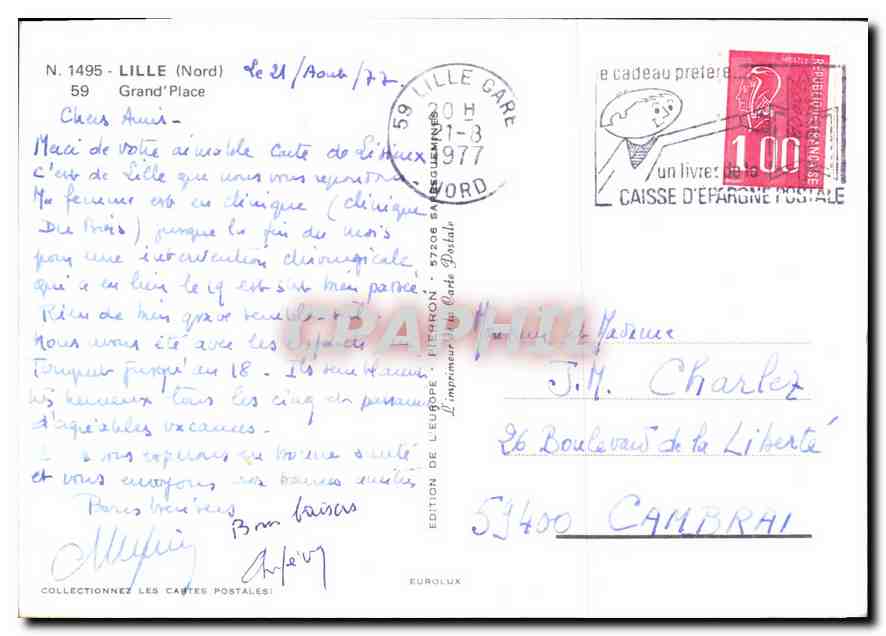 N. 1495 - LILLE (Nord)
59 Grand'Place
Le 21/Août/77
Chers Amis -
Merci de votre aimable carte de Lisieux
c'est de Lille que nous vous répondons
Ma femme est en clinique (clinique
Du Bois) jusque la fin du mois
pour une intervention chirurgicale
qui a eu lieu le 19 et s'est bien passée.
Rien de bien grave semble-t-il.
Nous avons été avec les
Touquet jusqu'au 18 - Ils semblaient
très heureux tous les cinq de passer
d'agréables vacances -
vous espérons en bonne santé
et vous envoyons nos bonnes amitiés
Bons baisers
Bons baisers
COLLECTIONNEZ LES CARTES POSTALES!
59 LILLE GARE
20 H
21-8
1977
NORD
EDITION DE L'EUROPE - PIERRON - 57206 SARREGUEMINES
L'imprimeur de la Carte Postale
EUROLUX
e cadeau préféré...
un livret de la
CAISSE D'EPARGNE POSTALE
REPUBLIQUE FRANCAISE
1,00
Monsieur et Madame
J.M. Charlez
26 Boulevard de la Liberté
59400 CAMBRAI
CPAPHIL